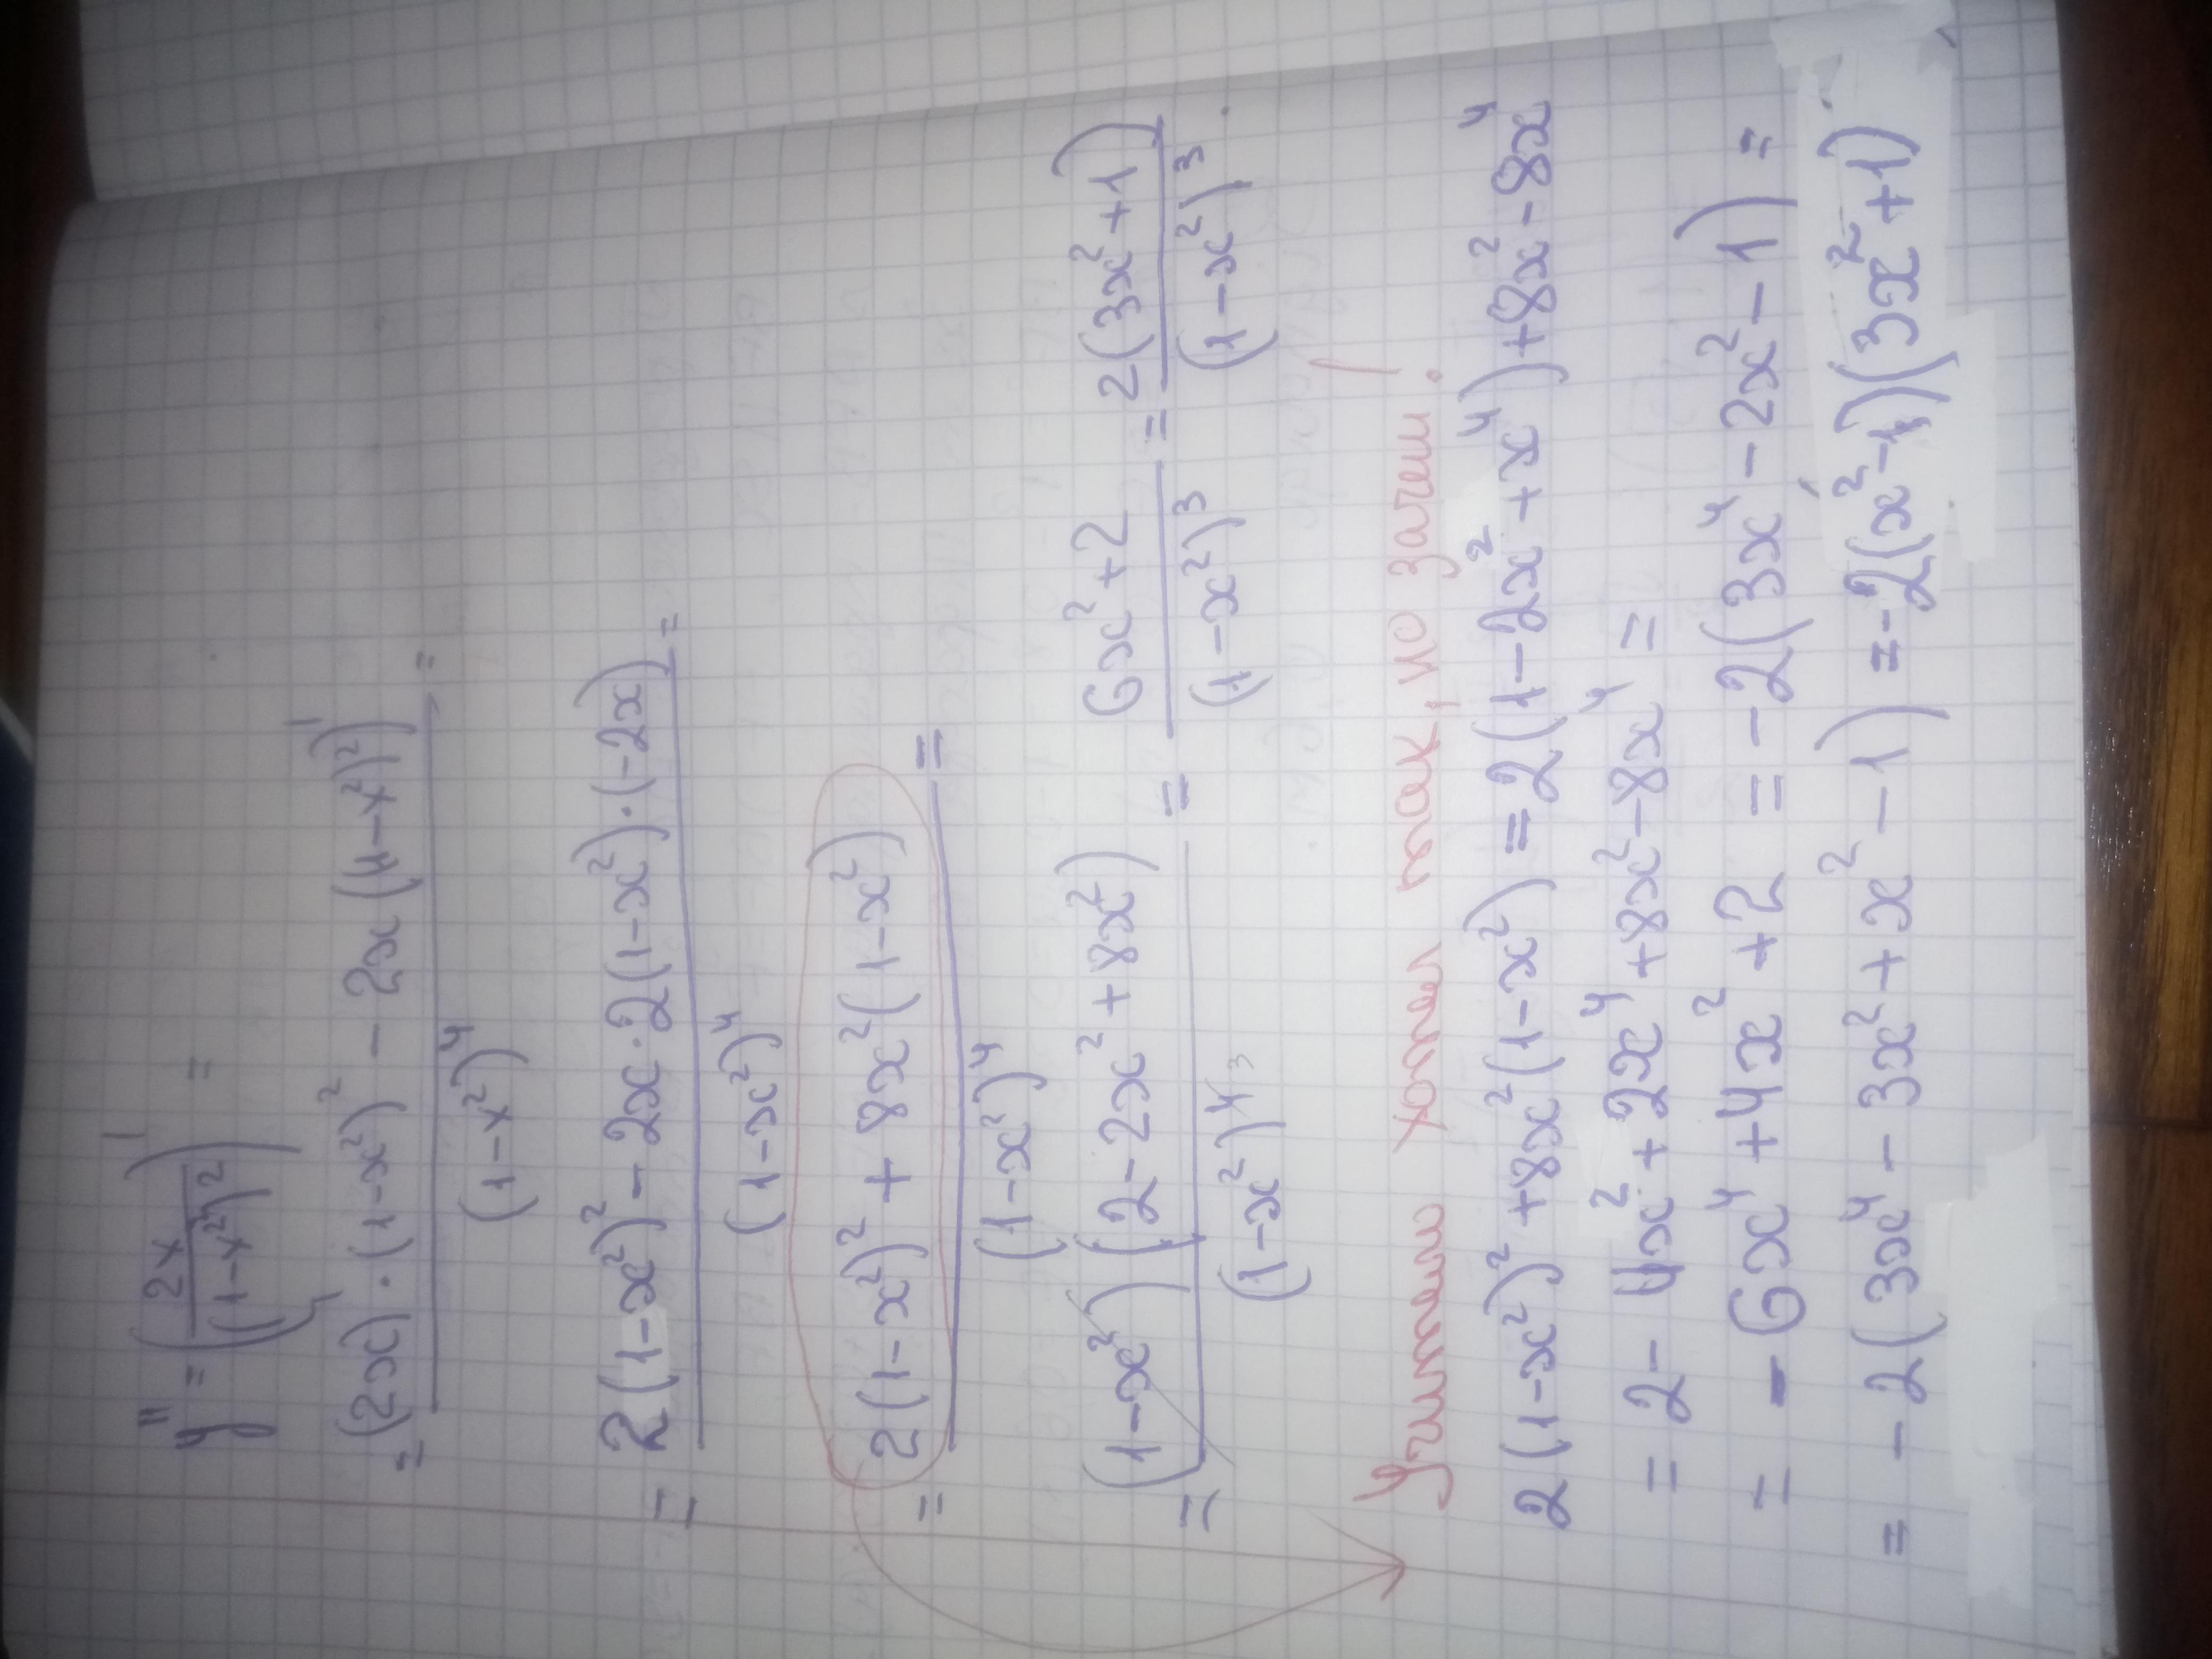 y'' = (2x/(1-x²)²)' =
= ((2x)'·(1-x²)² - 2x((1-x²)²)')/(1-x²)⁴ =
= (2(1-x²)² - 2x·2(1-x²)·(-2x))/(1-x²)⁴ =
= (2(1-x²)² + 8x²(1-x²))/(1-x²)⁴ =
= ((1-x²)(2-2x²+8x²))/(1-x²)⁴ ³ = (6x²+2)/(1-x²)³ = (2(3x²+1))/(1-x²)³.
Учитель хотел так, но зачем!
2(1-x²)²+8x²(1-x²) = 2(1-2x²+x⁴)+8x²-8x⁴
= 2-4x²+2x⁴+8x²-8x⁴ =
= -6x⁴+4x²+2 = -2(3x⁴-2x²-1) =
= -2(3x⁴-3x²+x²-1) = -2(x²-1)(3x²+1).